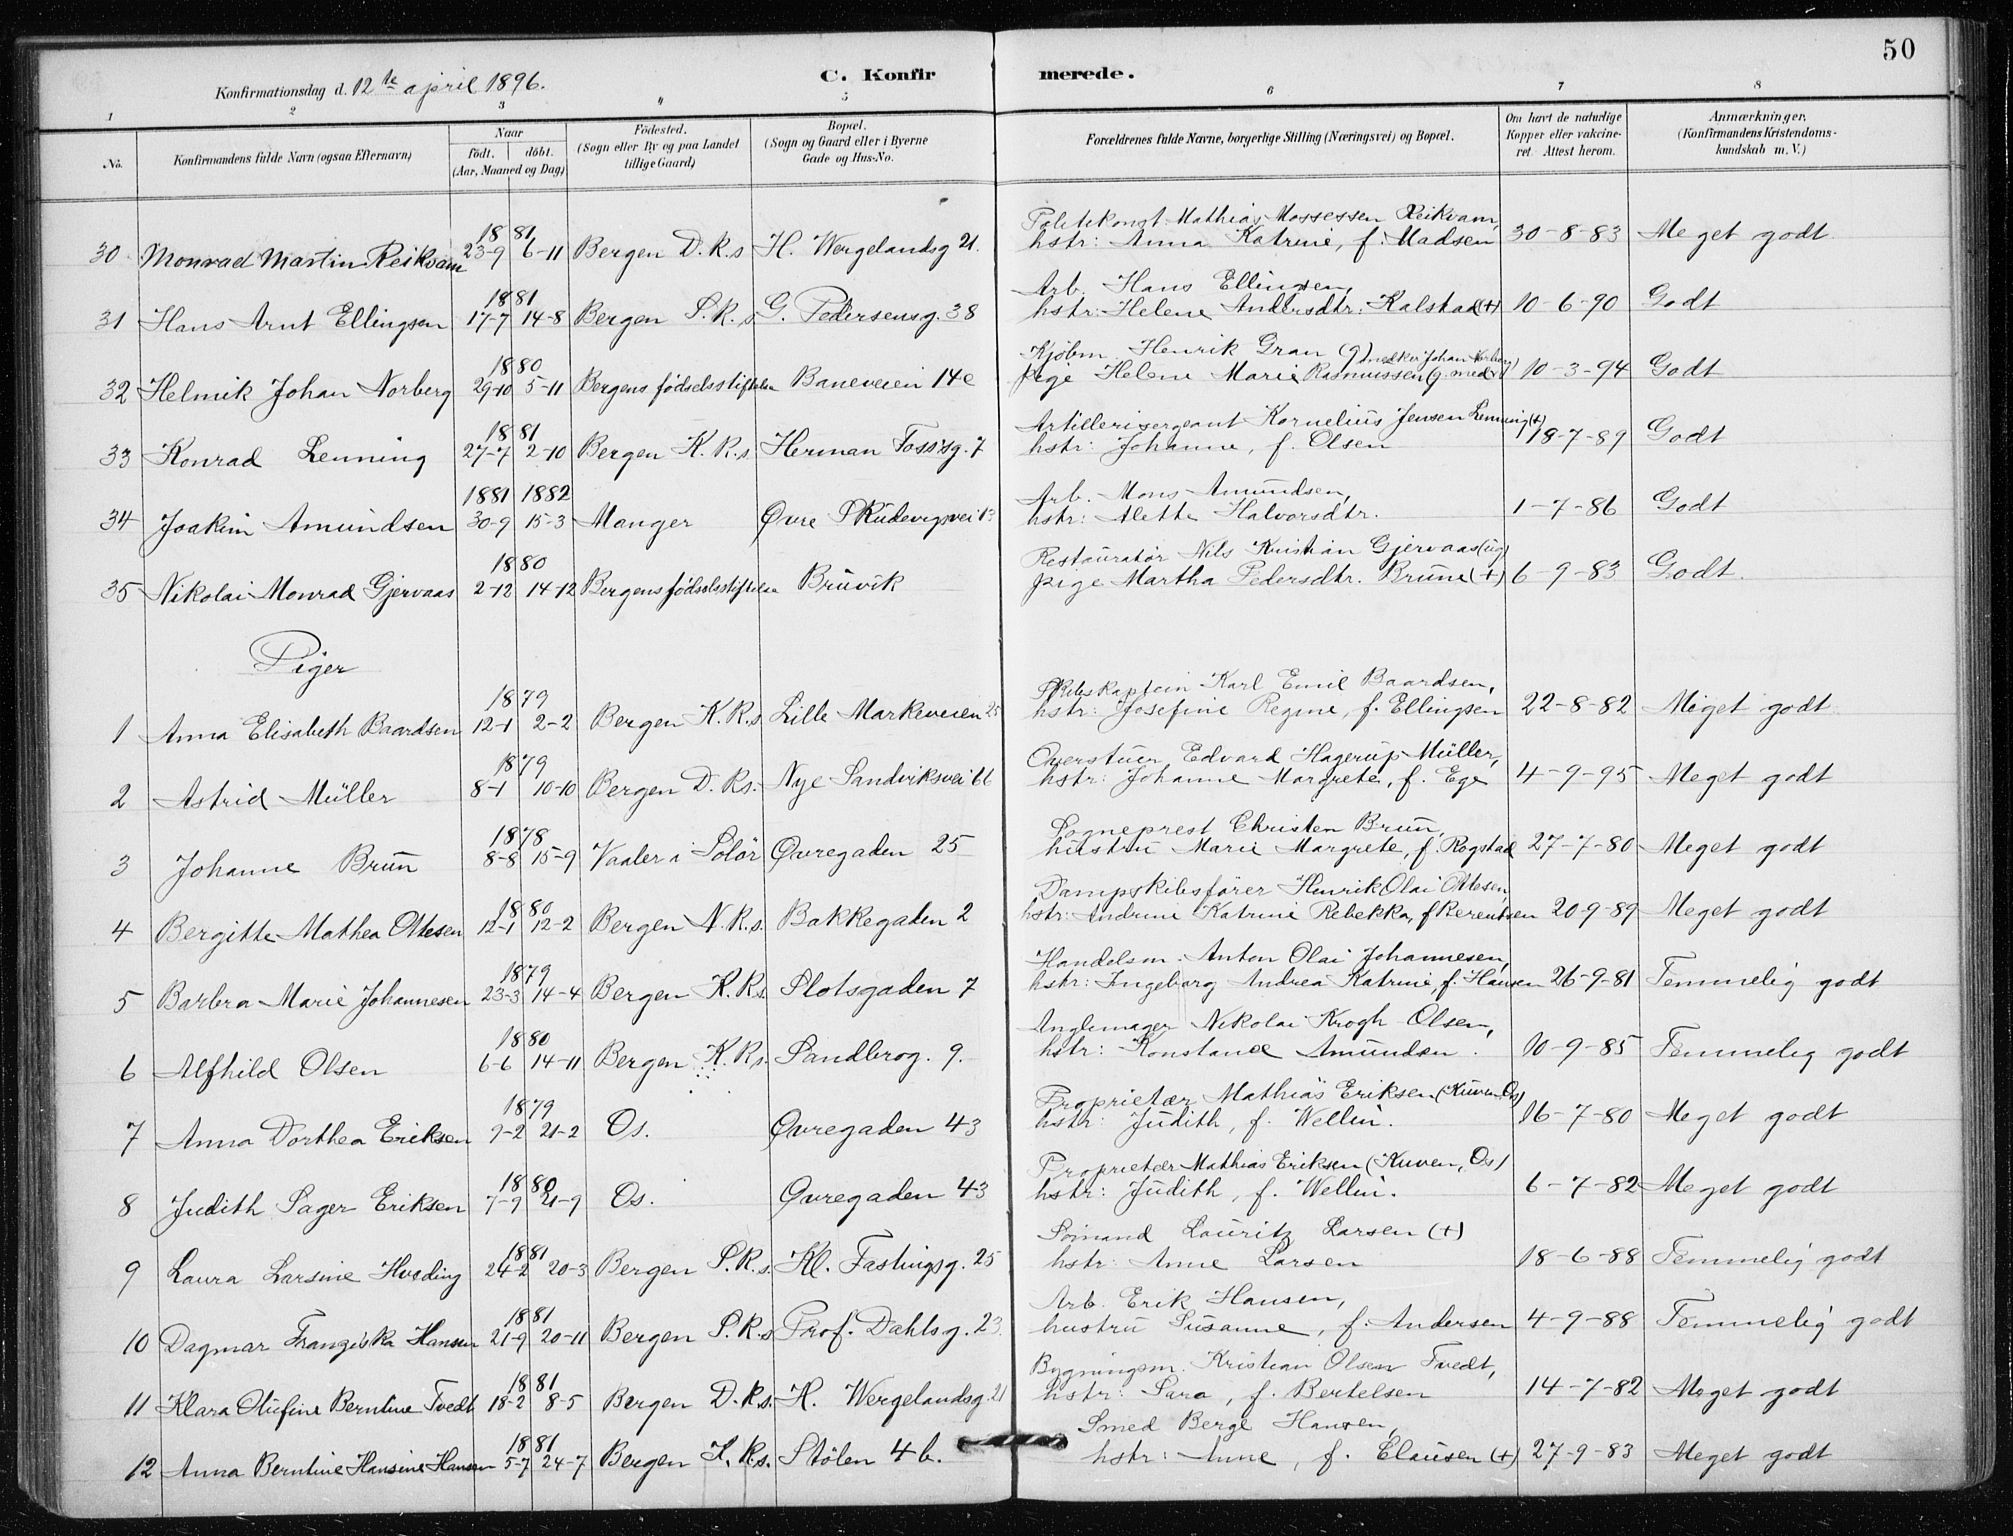 50
Konfirmationsdag d. 12te april 1896.
C. Konfirmerede.
1 2 3 4 5 6 7 8
No. | Konfirmandens fulde Navn (ogsaa Efternavn) | Naar födt. döbt. (Aar, Maaned og Dag) | Födested. (Sogn eller By og paa Landet tillige Gaard) | Bopæl. (Sogn og Gaard eller i Byerne Gade og Hus-No. | Forældrenes fulde Navne, borgerlige Stilling (Næringsvei) og Bopæl. | Om havt de naturlige Kopper eller vakcineret. Attest herom. | Anmærkninger. (Konfirmandens Kristendomskundskab m. V.)
30 Monrad Martin Reikvam 1881 23-9 6-11 Bergen D.K.s H. Wergelandsg 21. Politikonst. Mathias Mossessen Reikvam, hstr: Anna Katrine, f. Madsen 30-8-83 Meget godt
31 Hans Arnt Ellingsen 1881 17-7 14-8 Bergen S.K.s G. Pedersensg. 38 Arb. Hans Ellingsen, hstr: Helene Andersdtr. Kalstad (+) 10-6-90 Godt
32 Helmik Johan Norberg 1880 29-10 5-11 Bergens fødselsstiftelse Baneveien 14c Kjøbm. Henrik Gran (g) pige Helene Marie Rasmussen (g. med snedker Johan Norberg) 10-3-94 Godt
33 Konrad Lenning 1881 27-7 2-10 Bergen K.K.s. Herman Fossg. 7 Artillerisergeant Kornelius Jensen Lenning (+) hstr: Johanne, f. Olsen 18-7-89 Godt
34 Joakim Amundsen 1881 30-9 1882 15-3 Manger Øvre Skudevigsvei 13 Arb. Mons Amundsen, hstr: Alette Halvorsdtr. 1-7-86 Godt
35 Nikolai Monrad Gjervaas 1880 2-12 14-12 Bergens fødselsstiftelse Bruvik Restauratør Nils Kristian Gjervaas (ug) pige Martha Pedersdtr. Brune (+) 6-9-83 Godt.
Piger
1 Anna Elisabeth Baardsen 1879 12-1 2-2 Bergen K.K.s Lille Markeveien 25 Skibskaptein Karl Emil Baardsen, hstr: Josefine Regine, f. Ellingsen 22-8-82 Meget godt
2 Astrid Müller 1879 8-1 10-10 Bergen D.K.s. Nye Sandviksvei 66 Overstuer Edvard Hagerup Müller, hstr: Johanne Margrete, f. Ege 4-9-95 Meget godt
3 Johanne Brun 1878 8-8 15-9 Vaaler i Solør Øvregaden 25 Sogneprest Christen Brun, hustru Marie Margrete, f. Rogstad 27-7-80 Meget godt
4 Bergitte Mathea Ottesen 1880 12-1 12-2 Bergen N.K.s. Bakkegaden 2 Dampskibsfører Henrik Olai Ottesen, hstr: Andrine Katrine Rebekka, f Berentsen 20-9-89 Meget godt
5 Barbra Marie Johannesen 1879 23-3 14-4 Bergen K.K.s. Slotsgaden 7 Handelsm. Anton Olai Johannesen, hstr: Ingeborg Andrea Katrine, f. Hansen 26-9-81 Temmelig godt
6 Alfhild Olsen 1880 6-6 14-11 Bergen K.K.s. Sandbrog. 9. Anglemager Nikolai Krogh Olsen, hstr: Konstance Amundsen. 10-9-85 Temmelig godt
7 Anna Dorthea Eriksen 1879 9-2 21-2 Os. Øvregaden 43 Proprietær Mathias Eriksen (Kuven, Os) hstr: Judith, f. Wellin. 16-7-80 Meget godt
8 Judith Sager Eriksen 1880 7-9 21-9 Os. Øvregaden 43 Proprietær Mathias Eriksen (Kuven, Os) hstr: Judith, f. Wellin. 6-7-82 Meget godt
9 Laura Larsine Hveding 1881 24-2 20-3 Bergen S.K.s. Kl. Fastingsg. 25 Sømand Lauritz Larsen (+) hstr: Anne Larsen 18-6-88 Temmelig godt
10 Dagmar Frangiska Hansen 1881 21-9 20-11 Bergen S.K.s Prof. Dahlsg. 23 Arb. Erik Hansen, hustru Susanne, f. Andersen 4-9-88 Temmelig godt
11 Klara Olufine Berntine Tvedt 1881 18-2 8-5 Bergen D.K.s. H. Wergelandsg. 21 Bygningsm. Kristian Olsen Tvedt, hstr: Sara, f. Bertelsen 14-7-82 Meget godt
12 Anna Berntine Hansine Hansen 1881 5-7 24-7 Bergen K.K.s. Stølen 4 b. Smed Berge Hansen, hstr: Anne, f. Clausen (+) 27-9-83 Meget godt